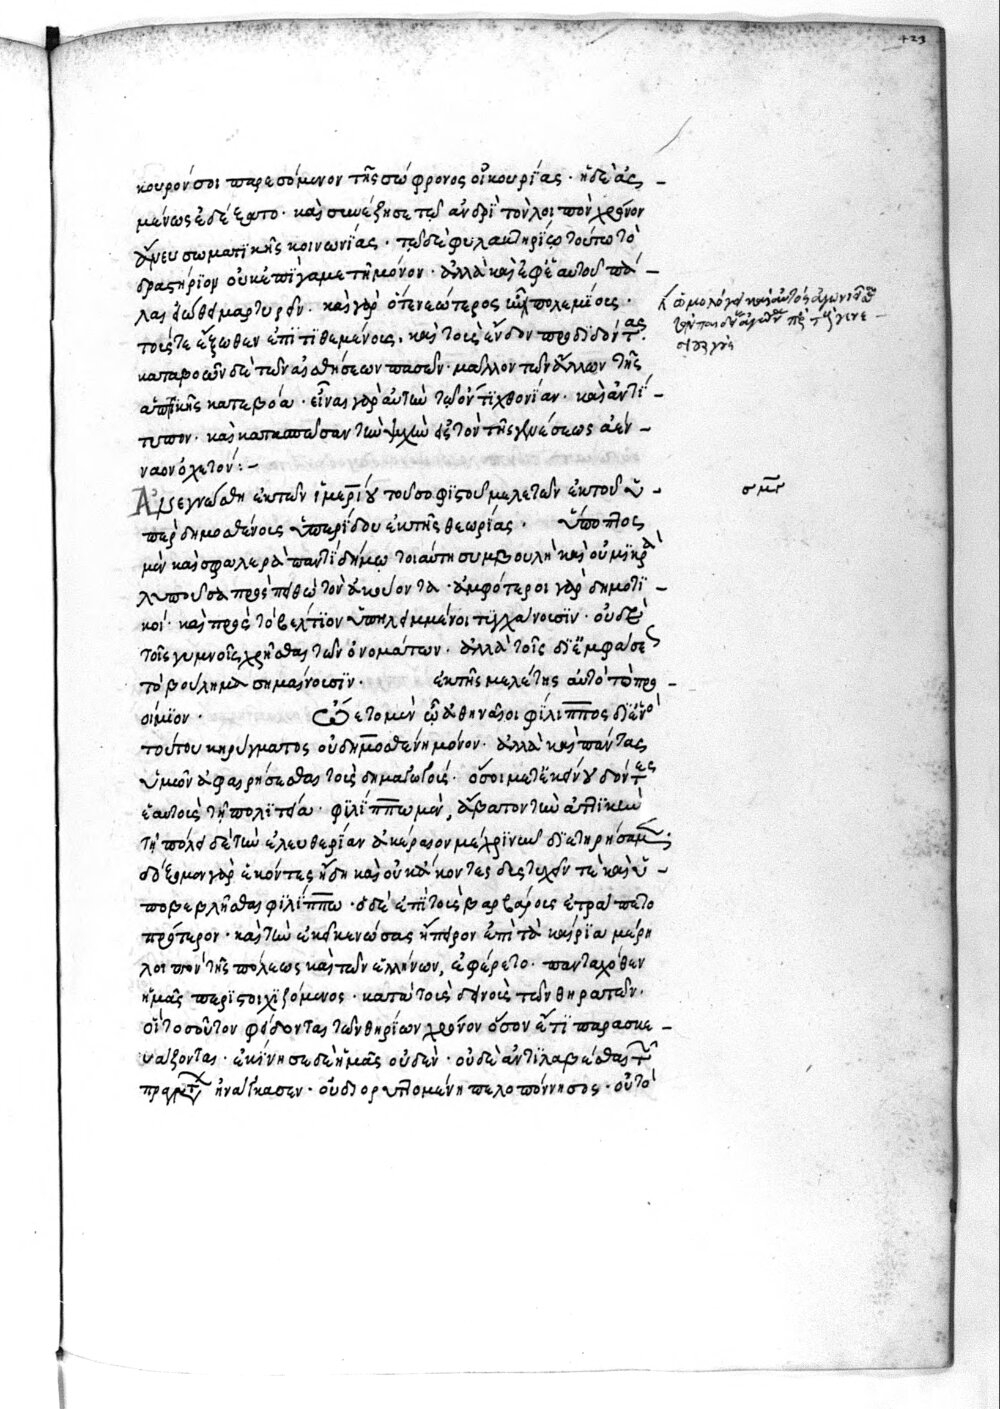 423
κουρόν σοι παρεσόμενον τῆς σώφρονος οἰκουρίας · ἡ δὲ ἀς
μένως ἐδέξατο · καὶ συνέζησε τῷ ἀνδρὶ τὸν λοιπὸν χρόνον
ἄνευ σωματικῆς κοινωνίας · τῷ δὲ φυλακτηρίῳ τούτῳ τὸ
δραστήριον οὐκ ἐπὶ γαμετῇ μόνον · ἀλλὰ καὶ ἐφ' ἑαυτοῦ πά
λαι μαρτυρεῖν · καὶ γὰρ ὅτε νεώτερος ὢν πολεμίοις ·
τοῖς τε ἔξωθεν ἐπιτιθεμένοις · καὶ τοῖς ἔνδον προδιδόντας ·
καταβοῶν δὲ τῶν αἰσθήσεων πασῶν · μᾶλλον τῶν ἄλλων τῆς
ἁπτικῆς κατεβόα · εἶναι γὰρ αὐτὴν τῷ ὄντι χθονίαν · καὶ ἀντί
τυπον · καὶ κατασπῶσαν τὴν ψυχὴν εἰς τὸν τῆς γενέσεως ἀέν
ναον ὀχετόν :–
Ἀνεγνώσθη ἐκ τῶν ἱμερίου τοῦ σοφιστοῦ μελετῶν ἐκ τοῦ ὑ
πὲρ δημοσθένους ὑπερίδου ἐκ τῆς θεωρίας · ὕποπτος
μὲν καὶ σφαλερὰ παντὶ δήμῳ τοιαύτη συμβουλὴ καὶ οὐ μικρὰ
λυποῦσα πρὸς πειθὼ τὸν ἀκούοντα · ἀμφότεροι γὰρ δημοτι
κοί · καὶ πρὸς τὸ βέλτιον ὑπειλημμένοι τυγχάνουσιν · οὐδὲ
τοῖς γυμνοῖς χρῆσθαι τῶν ὀνομάτων · ἀλλὰ τοῖς δι' ἐμφάσε
το βούλημα σημαίνουσιν · ἐκ τῆς μελέτης αὐτὸ τὸ προ
οίμιον · ὤετο μὲν ὦ ἀθηναῖοι φίλιππος δι' ἑνὸς
τούτου κηρύγματος οὐ δημοσθένη μόνον · ἀλλὰ καὶ πάντας
ὑμῶν ἀφαιρήσεσθαι τοὺς δημαγωγούς · ὅσοι μετ' ἐκείνου δόντες
ἑαυτοὺς τῇ πολιτείᾳ · φιλίππῳ μὲν, ἄβατον τὴν ἀττικὴν
τῇ πόλει δὲ τὴν ἐλευθερίαν ἀκέραιον μέχρι νῦν διετηρήσαμεν ·
σὸ ἑκόντες ἤδη καὶ οὐκ ἄκοντες δυστυχεῖν τε καὶ ὑ
ποβεβλῆσθαι φιλίππῳ · ὁ δὲ ἐπὶ τοὺς βαρβάρους ἐτράπετο
πρότερον · καὶ τὴν ἐκεῖ κενώσας ἤπειρον ἐπὶ τὰ καίρια μέρη
λοιπὸν τῆς πόλεως καὶ τῶν ἑλλήνων, ἐφέρετο · πανταχόθεν
ἡμᾶς περιστοιχιζόμενος · κατὰ τοὺς δεινοὺς τῶν θηρατῶν ·
οἳ τοσοῦτον φείδονται τῶν θηρίων χρόνον ὅσον ἔτι παρασκε
υάζονται · ἐκίνησε δὲ ἡμᾶς οὐδέν · οὐδὲ ἀντιλαβέσθαι τῶν
πραγμάτων ἠνάγκασεν · οὐδ' ὀρυττομένη πελοπόννησος · οὐ τὸ
ὡμολόγει καὶ αὐτὸς
σημ